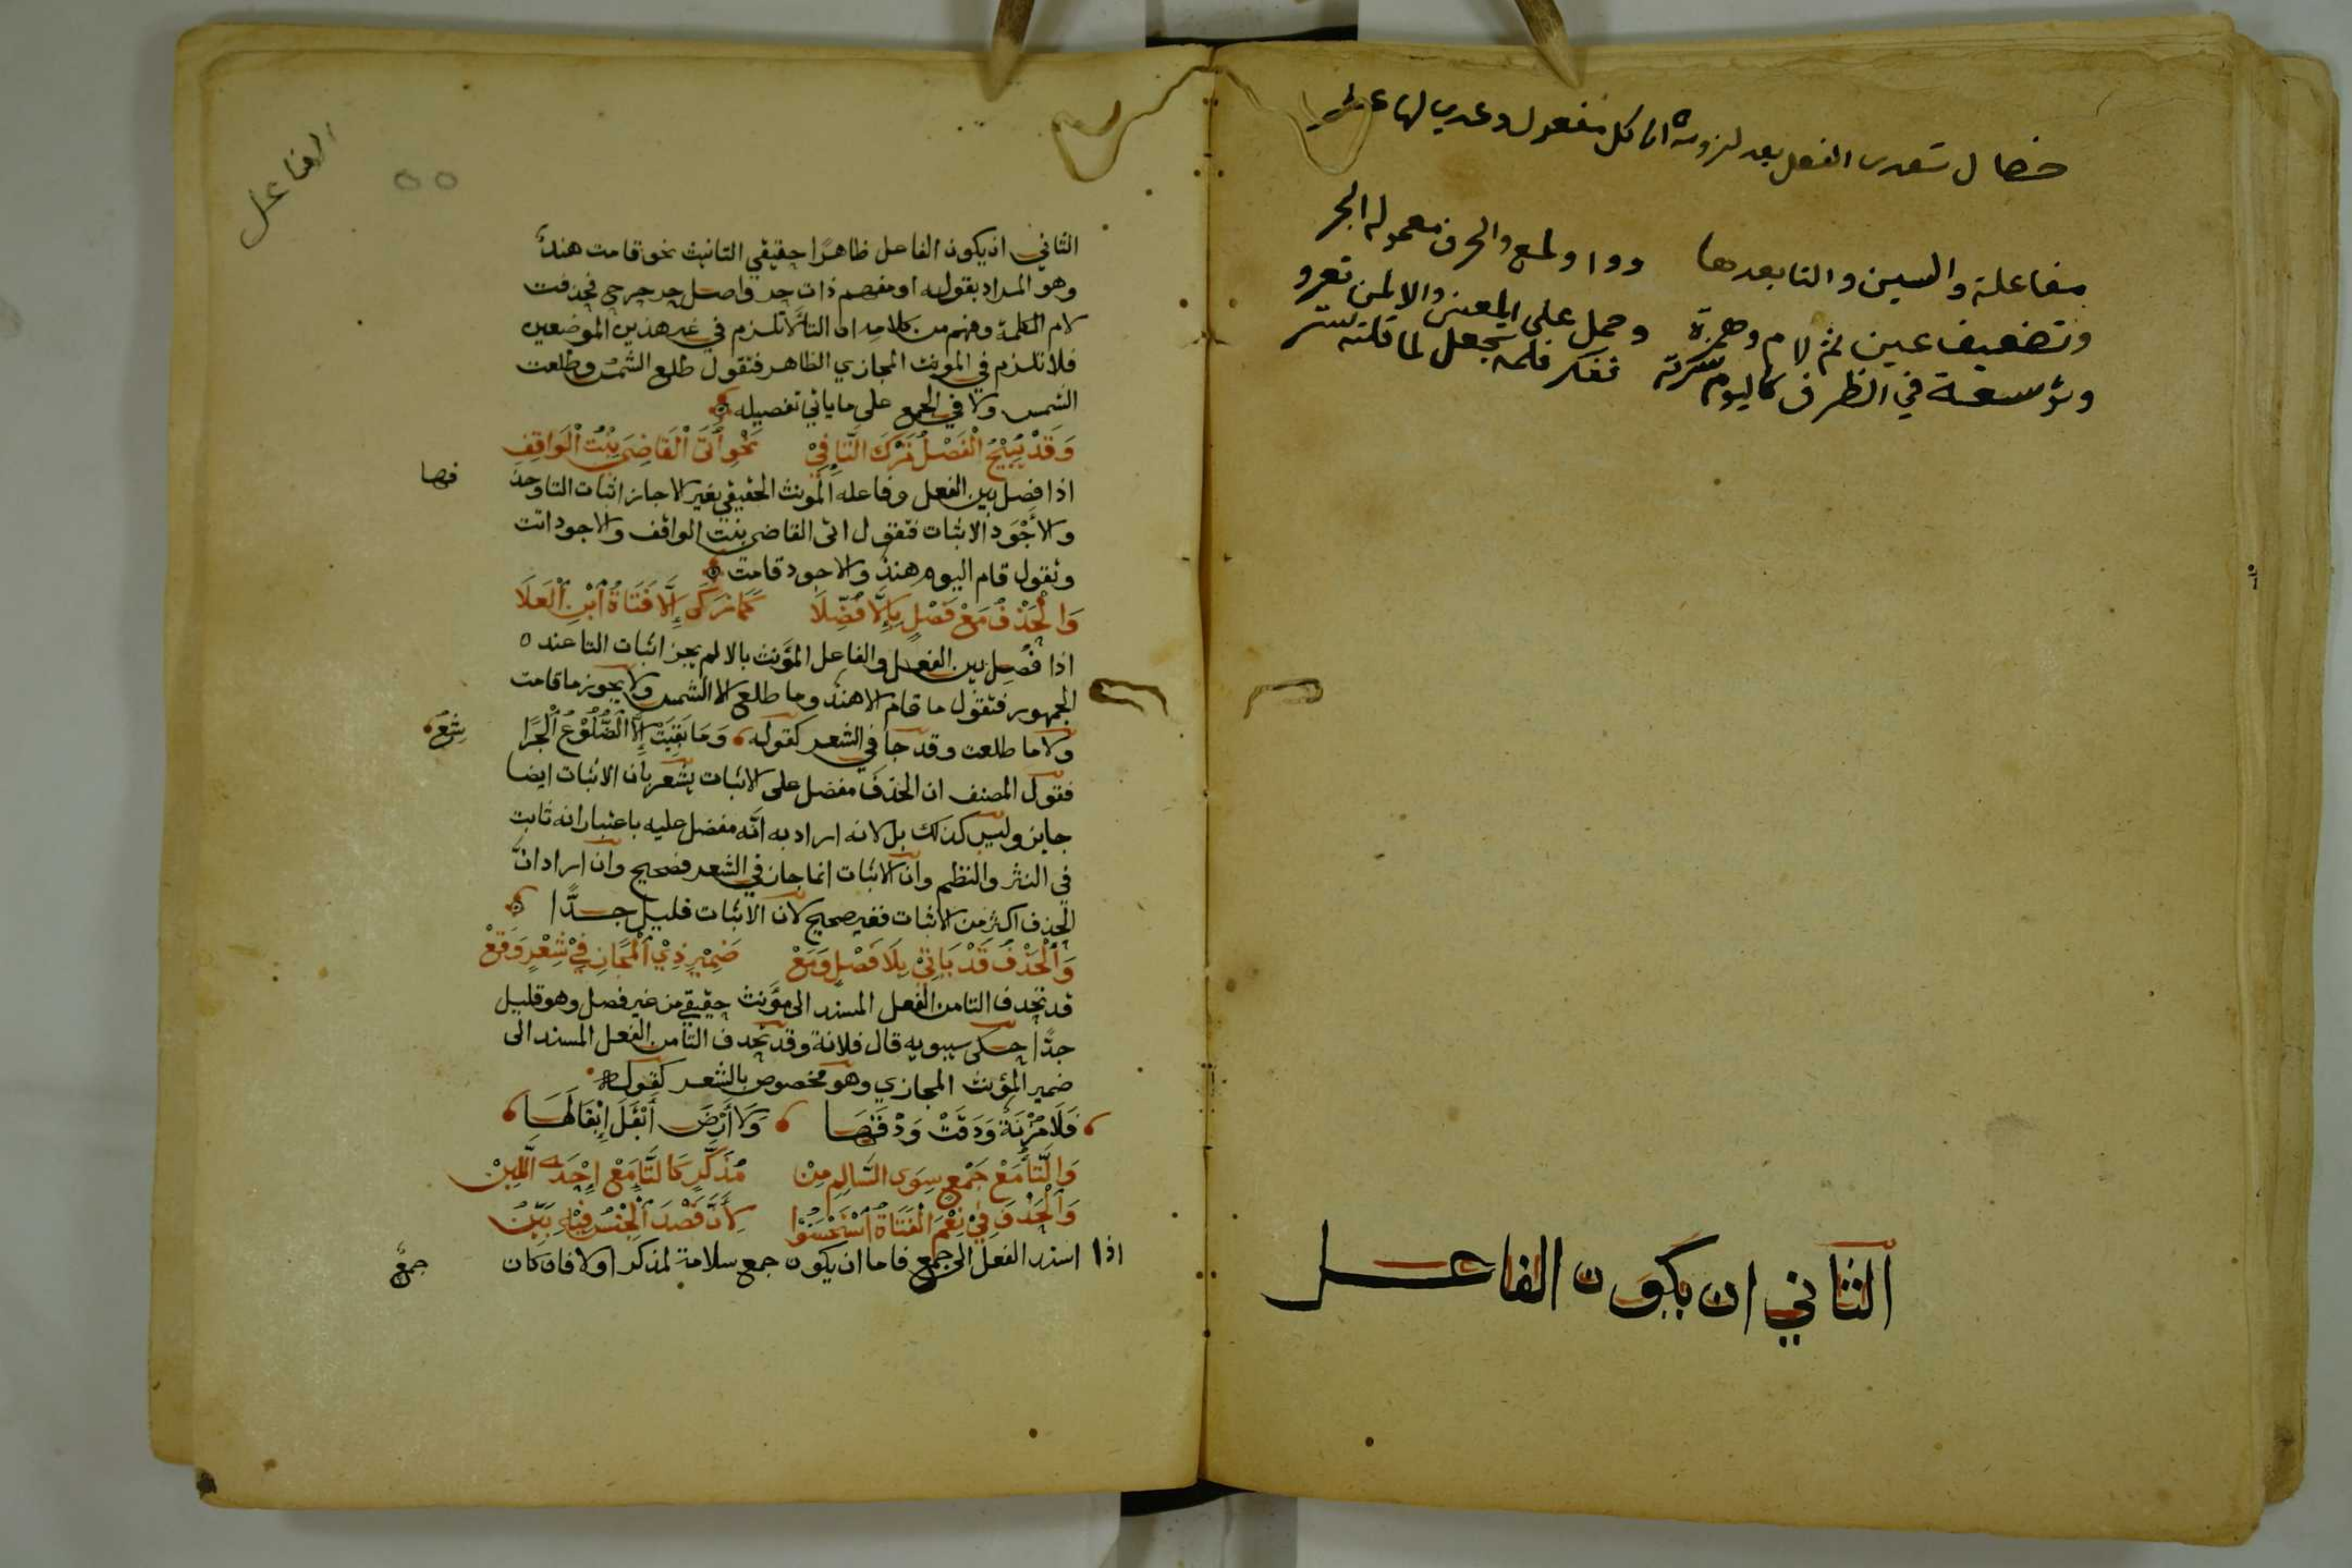 خصال تعدي الفعل بعد لزومه اما كل مفعول وعدي لها
مفاعلة والسين والتا بعدها ووا ولمع والحرف معموله الجر
وتضعيف عين ثم لام وهمزة وحمل على المعنى والا لمن تعرو
وتوسعة في الظرف كاليوم سرته تفكر فلم تجعل لما قلته ستر
الثاني ان يكون الفاعل
الفاعل
٥٥
الثاني ان يكون الفاعل ظاهرًا حقيقي التانيث نحو قامت هندٌ
وهو المراد بقوله او مفهم ذات حر واصل حر حرح فحذفت
لام الكلمة وفهم من كلامه ان التا لا تلزم في غير هذين الموضعين
فلا تلزم في المونث المجازي الظاهر فتقول طلع الشمس وطلعت
الشمس ولا في الجمع على ما ياتي تفصيله
وَقَدْ يُبِيْحُ الْفَصْلُ تَرْكَ التَّاءِ فِيْ نَحْوِ أَتَى الْقَاضِيَ بِنْتُ الْوَاقِفِ
اذا فصل بين الفعل وفاعله المونث الحقيقي بغير الا جاز اثبات التا وحذ
فها
والأجْوَد الاثبات فتقول اتى القاضي بنت الواقف والاجود اتت
وتقول قام اليوم هند والاجود قامت
وَالْحَذْفُ مَعْ فَصْلٍ بِإِلَّا فُضِّلَا كَمَا زَكَى إِلَّا فَتَاةُ ابْنِ الْعَلَا
اذا فُصِل بين الفعل والفاعل المؤنث بالا لم يجز اثبات التا عند ٥
الجمهور فتقول ما قام الا هند وما طلع الا الشمس ولا يجوز ما قامت
ولا ما طلعت وقد جا في الشعر كقوله وَمَا بَقِيَتْ إِلَّا الضُّلُوْعُ الْجُرَا
شِعُ
فقول المصنف ان الحذف مفضل على الاثبات يشعر بان الاثبات ايضا
جايز وليس كذلك بل لانه اراد به انَّه مفضل عليه باعتبار انه ثابت
في النثر والنظم وان الاثبات انما جا في الشعر فصحيح وان اراد انّ
الحذف اكثر من الاثبات فغير صحيح لان الاثبات قليل جدًّا
وَالْحَذْفُ قَدْ يَاتِيْ بِلَا فَصْلٍ وَمَعْ ضَمِيْرِ ذِيْ الْمَجَازِ فِيْ شِعْرٍ وَقَعْ
قد تحذف التا من الفعل المسند الى مؤنث حقيقي من غير فصل وهو قليل
جدًّا حكى سيبويه قال فلانة وقد تحذف التا من الفعل المسند الى
ضمير المؤنث المجازي وهو مخصوص بالشعر كقوله
فَلَا مُزْنَةٌ وَدَقَتْ وَدْقَهَا وَلَا أَرْضَ أَبْقَلَ إِبْقَالَهَا
وَالتَّا مَعْ جَمْعٍ سِوَى السَّالِمِ مِنْ مُذَكَّرٍ كَالتَّاءِ مَعْ إِحْدَى اللَّبِنْ
وَالْحَذْفَ فِيْ نِعْمَ الْفَتَاةُ اسْتَحْسَنُوْا لِأَنَّ قَصْدَ الْجِنْسِ فِيْهِ بَيِّنُ
اذا اسند الفعل الى جمع فاما ان يكون جمع سلامة لمذكر اولا فان كان
جمعَ